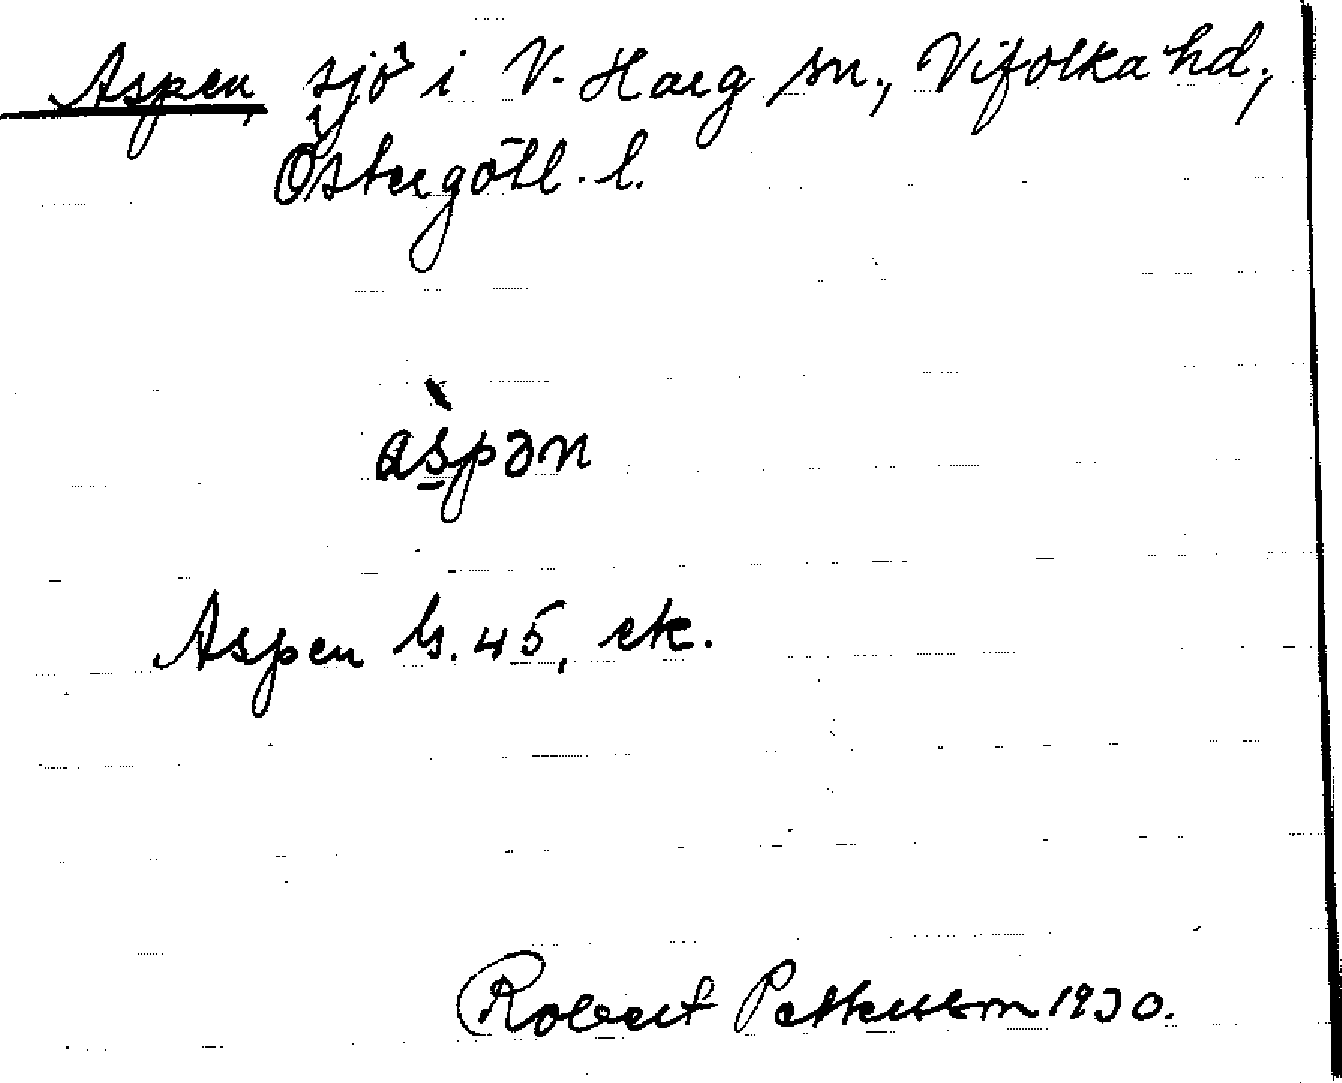 Aspen, sjö i V. Harg sn., Vifolka hd,
Östergötl. l.
àspən
Aspen G. 45, ek.
Robert Petterson 1930.